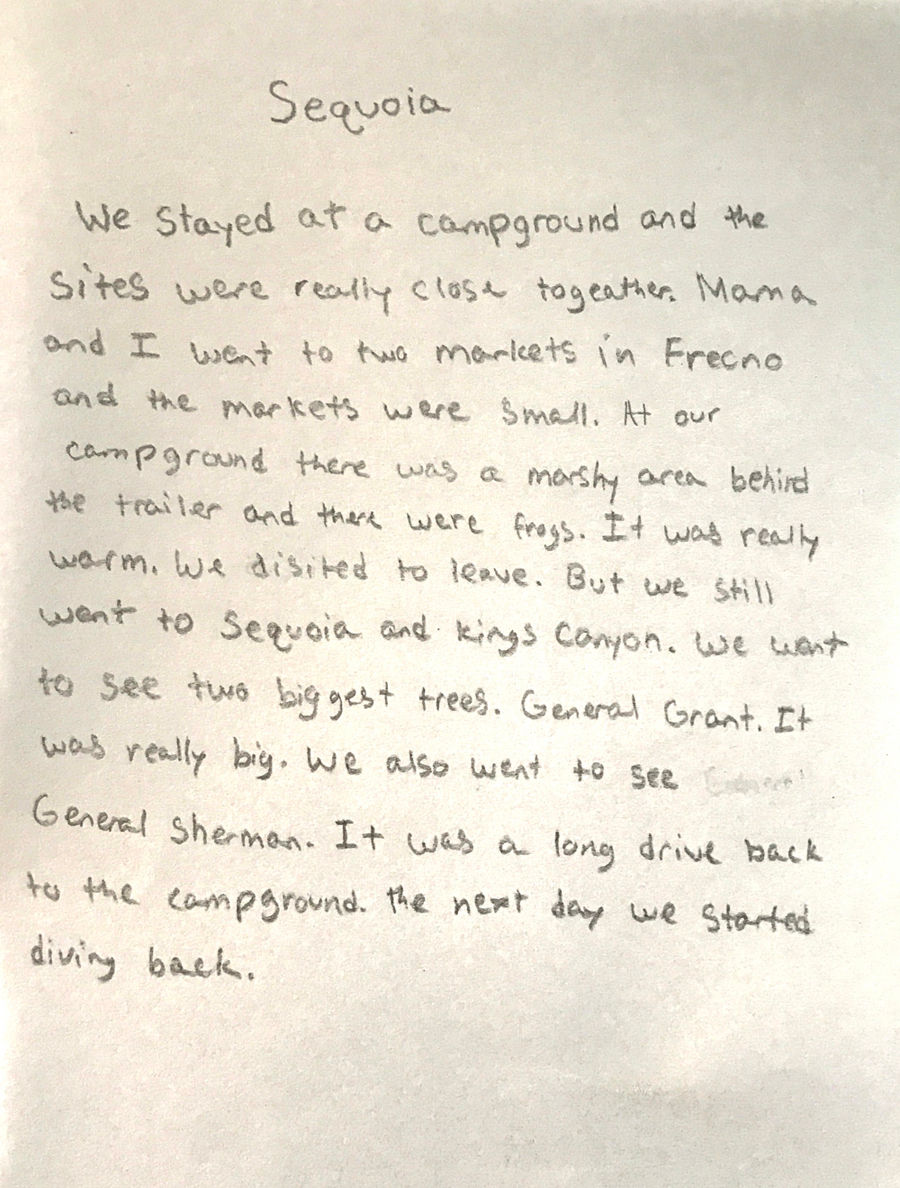 Sequoia
We stayed at a campground and the
sites were really close togeather. Mama
and I went to two markets in Frecno
and the markets were small. At our
campground there was a marshy area behind
the trailer and there were frogs. It was really
warm. We disited to leave. But we still
went to Sequoia and kings Canyon. We went
to see two biggest trees. General Grant. It
was really big. We also went to see
General Sherman. It was a long drive back
to the campground. The next day we started
diving back.